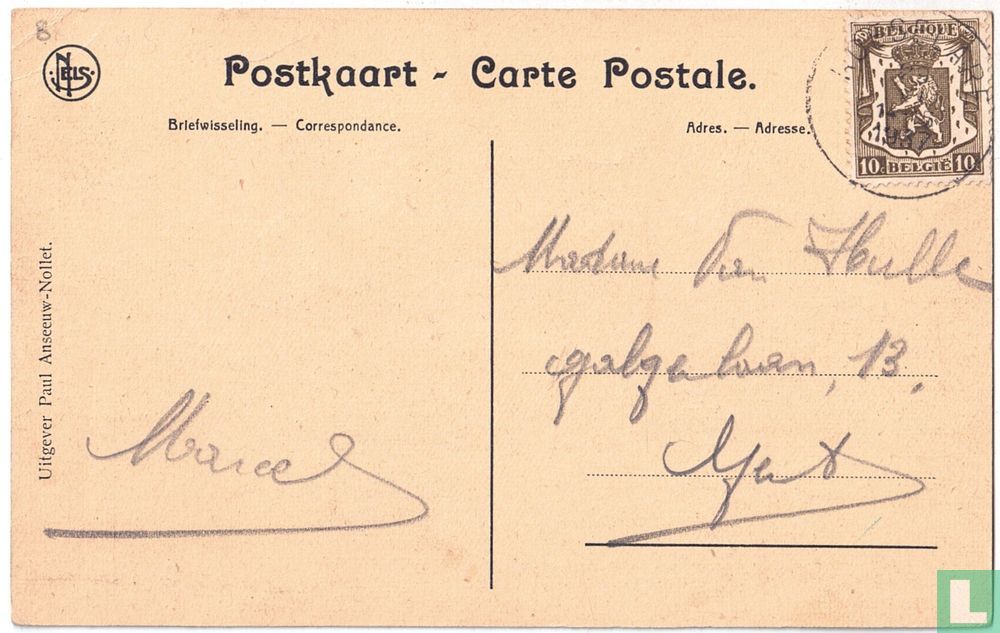 8
NELS
Postkaart - Carte Postale.
Briefwisseling. — Correspondance.
Adres. — Adresse.
BELGIQUE
1937
10c BELGIË 10c
Uitgever Paul Anseeuw-Nollet.
Marcel
Madame Van Hulle
galgelaan, 13,
Gent
L